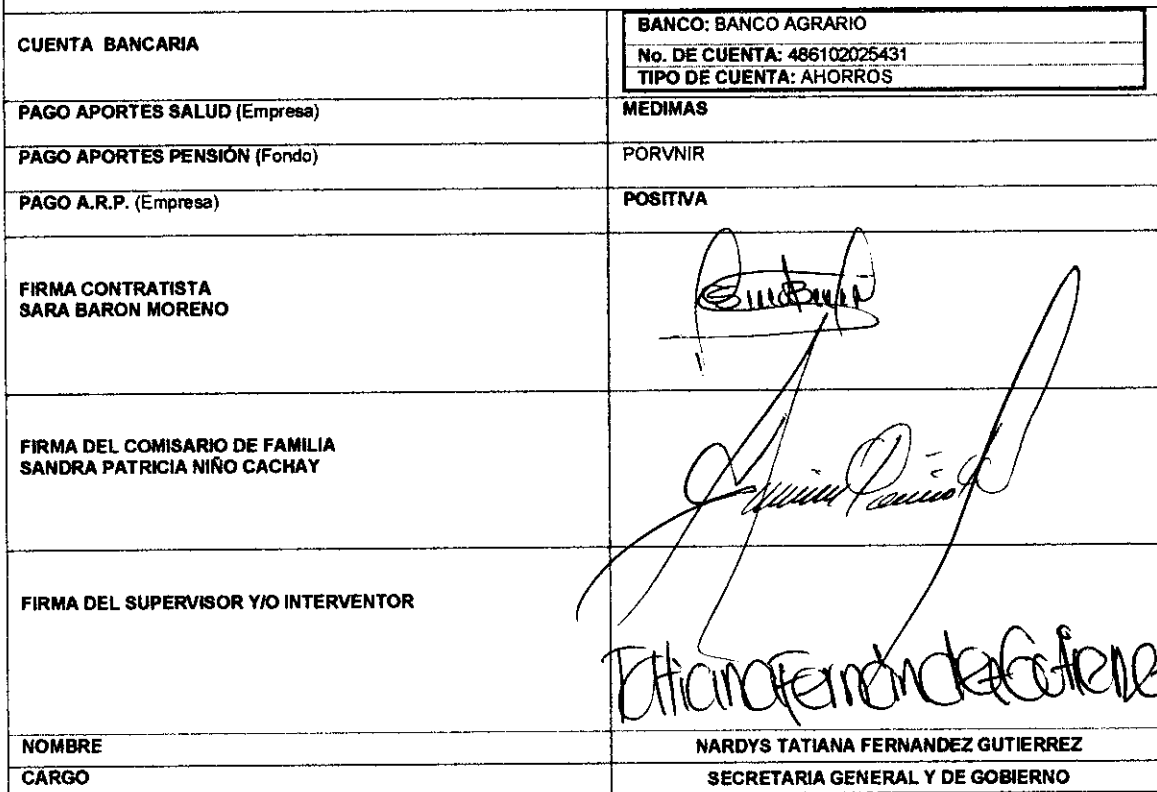 CUENTA BANCARIA
BANCO: BANCO AGRARIO
No. DE CUENTA: 486102025431
TIPO DE CUENTA: AHORROS
PAGO APORTES SALUD (Empresa)
MEDIMAS
PAGO APORTES PENSIÓN (Fondo)
PORVNIR
PAGO A.R.P. (Empresa)
POSITIVA
FIRMA CONTRATISTA
SARA BARON MORENO
FIRMA DEL COMISARIO DE FAMILIA
SANDRA PATRICIA NIÑO CACHAY
FIRMA DEL SUPERVISOR Y/O INTERVENTOR
Tatiana Fernández
NOMBRE
NARDYS TATIANA FERNANDEZ GUTIERREZ
CARGO
SECRETARIA GENERAL Y DE GOBIERNO